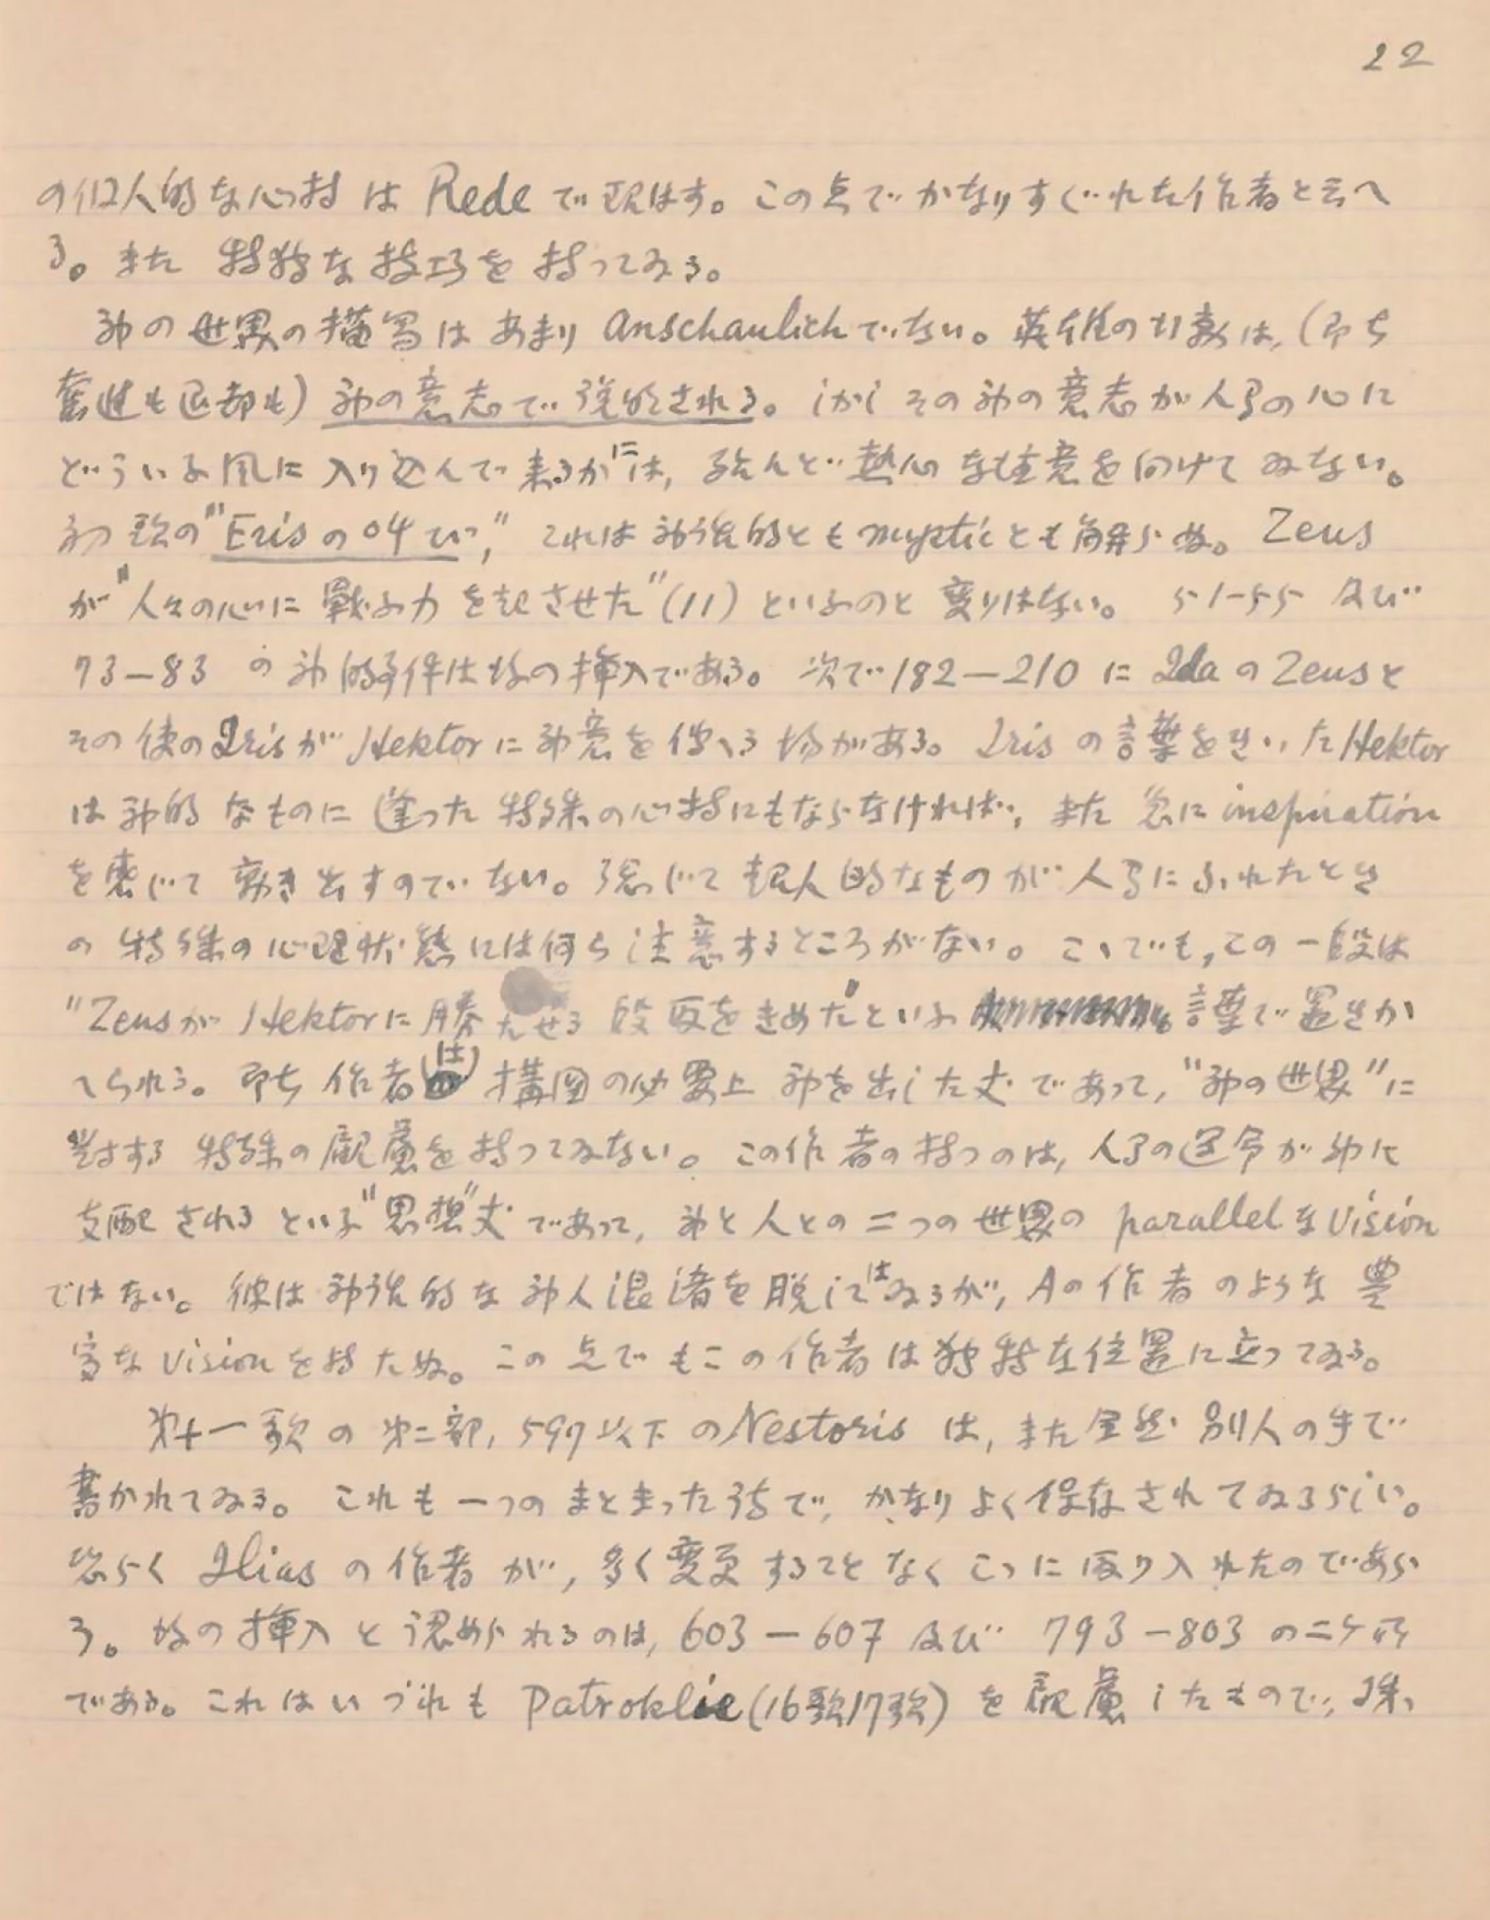 22
の個人的な心持は Rede で現はす。この点でかなりすぐれた作者と云へ
る。また 特殊な技巧を持ってゐる。
神の世界の描写はあまり anschaulich でない。英雄の行動は、(即ち
奮進も退却も) 神の意志で説明される。しかしその神の意志が人間の心に
どういふ風に入り込んで来るかには, 殆んど熱心な注意を向けてゐない。
初歌の"Erisの叫び", これは神話的とも mystic とも解らぬ。Zeus
が"人々の心に戦ふ力を起させた"(11) といふのと変りはない。51-55 及び
73—83 の神的事件は後の挿入である。次で 182—210 に Ida の Zeus と
その使の Iris が Hektor に神意を伝へる場がある。Iris の言葉をきいた Hektor
は神的なものに逢った特殊の心持にもならなければ, また急に inspiration
を感じて動き出すのでない。総じて超人的なものが人間にふれたとき
の特殊の心理状態には何ら注意するところがない。こゝでも, この一段は
"Zeus が Hektor に勝たせる段取をきめた"といふ 言葉で置きか
へられる。即ち作者(は) 構図の必要上神を出した丈であって, "神の世界"に
対する特殊の顧慮を持ってゐない。この作者の持つのは, 人間の運命が神に
支配されるといふ"思想"丈であって, 神と人との二つの世界の parallel な Vision
ではない。彼は神話的な神人混淆を脱してはゐるが, Aの作者のような豊
富な vision を持たぬ。この点でもこの作者は独特な位置に立ってゐる。
第十一歌の第二部, 597以下の Nestoris は, また全然別人の手で
書かれてゐる。これも一つのまとまった詩で, かなりよく保存されてゐるらしい。
恐らく Ilias の作者が, 多く変更することなくこゝに取り入れたのであら
う。後の挿入と認められるのは, 603—607 及び 793—803 の二ケ所
である。これはいづれも Patroklie (16歌17歌) を顧慮したもので,